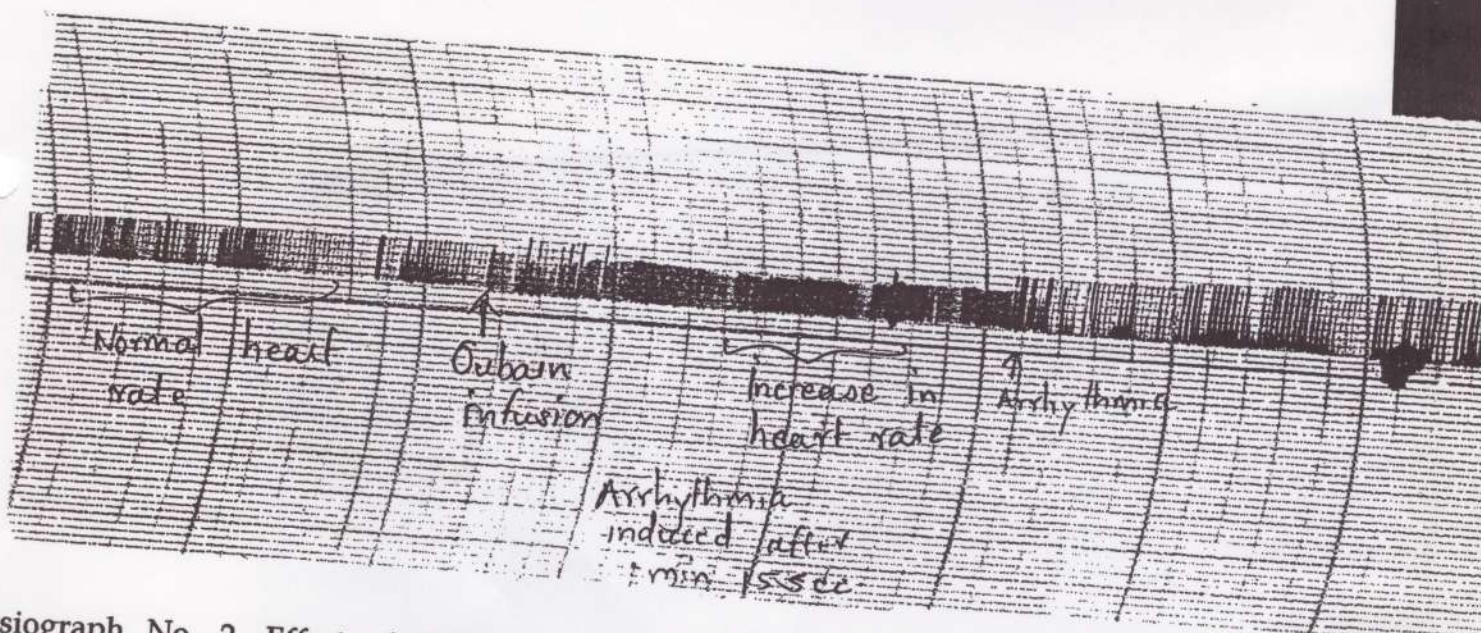 Normal heart
rate
Oubain
infusion
Increase in
heart rate
Arrhythmia
Arrhythmia
induced after
1 min 15 sec
siograph No. 2